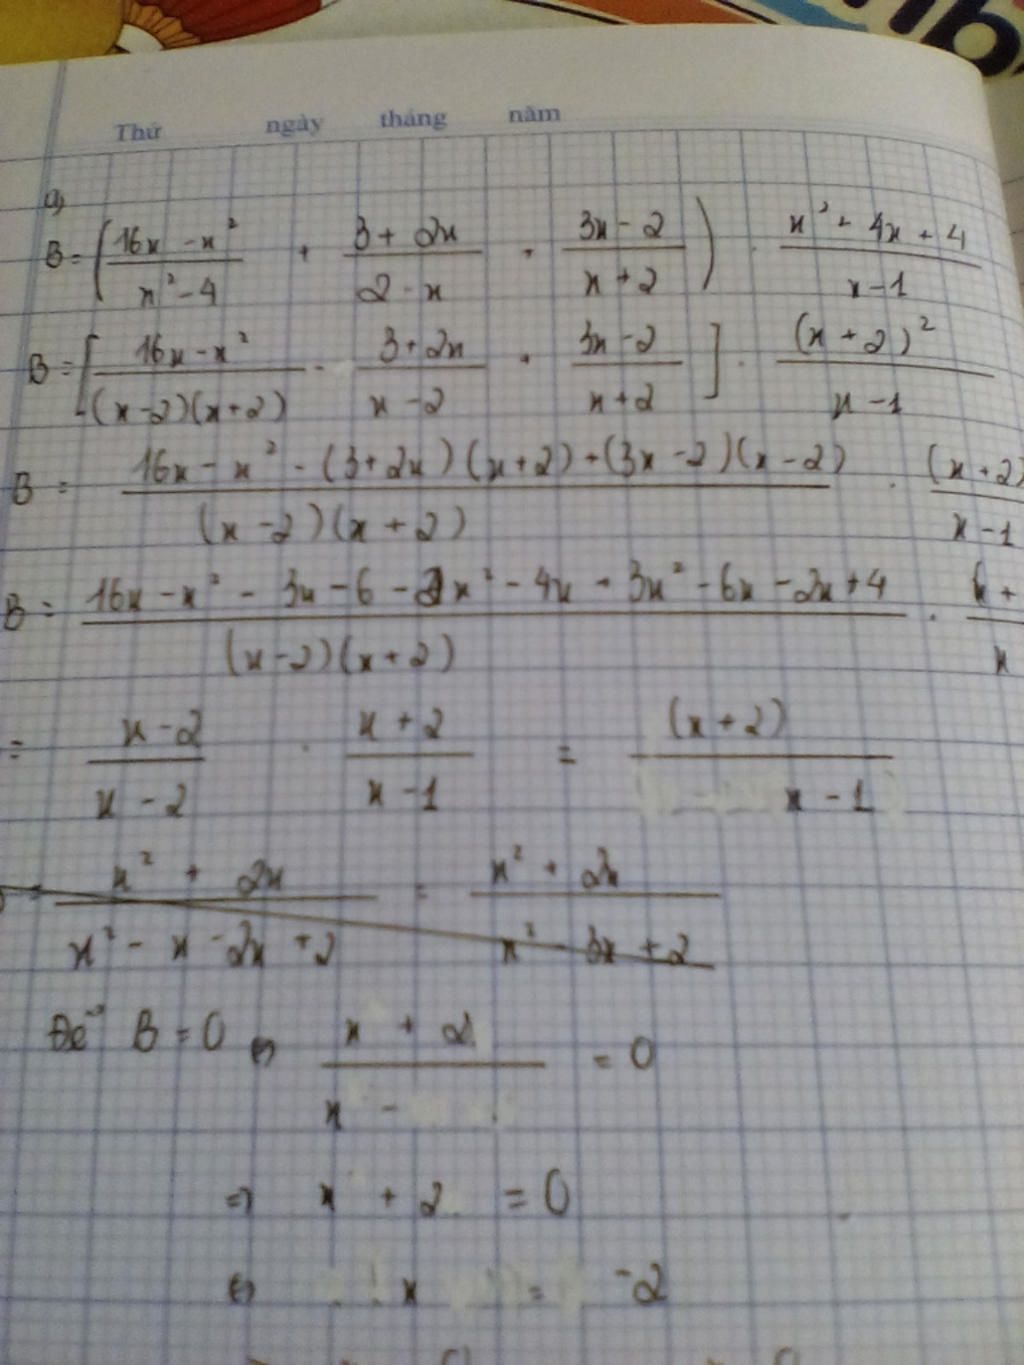 Thứ ngày tháng năm
a,
B = ( (16x - x²)/(x² - 4) + (3 + 2x)/(2 - x) + (3x - 2)/(x + 2) ) . (x² + 4x + 4)/(x - 1)
B = [ (16x - x²)/((x-2)(x+2)) - (3 + 2x)/(x - 2) + (3x - 2)/(x + 2) ] . (x + 2)²/(x - 1)
B = (16x - x² - (3+2x)(x+2) + (3x-2)(x-2))/((x-2)(x+2)) . (x+2)/(x-1)
B = (16x - x² - 3x - 6 - 2x² - 4x + 3x² - 6x - 2x + 4)/((x-2)(x+2)) . (x +/x
= (x-2)/(x-2) . (x+2)/(x-1) = (x+2)/(x-1)
(x² + 2x)/(x² - x - 2x + 2) = (x² + 2x)/(x² - 3x + 2)
Để B = 0 ⇔ (x + 2)/(x - = 0
⇒ x + 2 = 0
⇔ x = -2